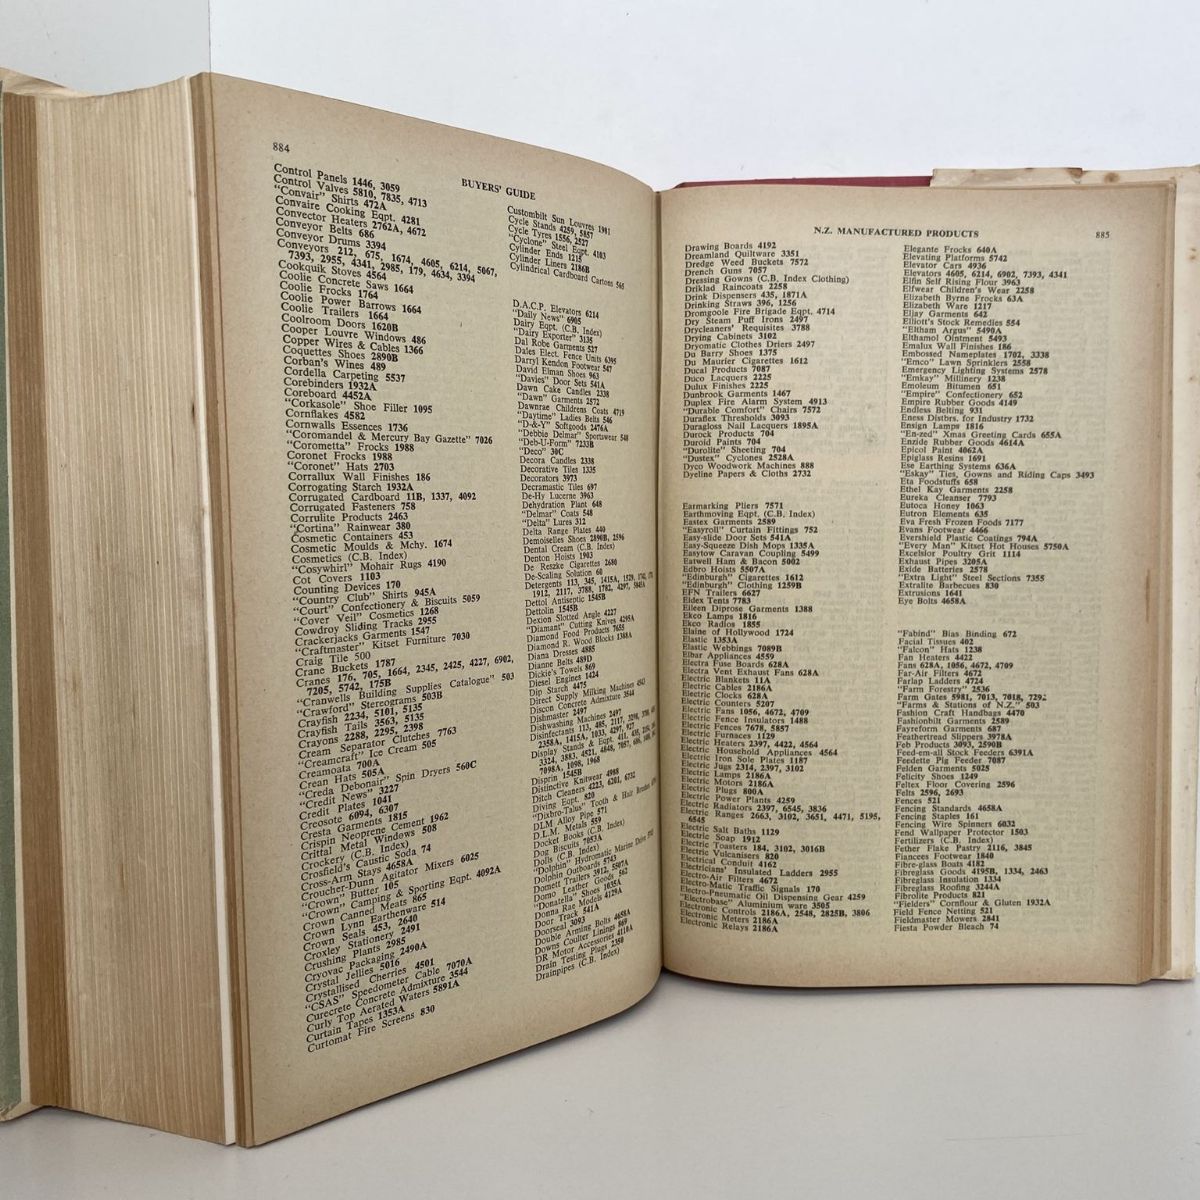 884
BUYERS' GUIDE
Control Panels 1446, 3059
Control Valves 5810, 7835, 4713
"Convair" Shirts 472A
Convaire Cooking Eqpt. 4281
Convector Heaters 2762A, 4672
Conveyor Belts 686
Conveyor Drums 3394
Conveyors 212, 675, 1674, 4605, 6214, 5067,
7393, 2955, 4341, 2985, 179, 4634, 3394
Cookquik Stoves 4564
Coolie Concrete Saws 1664
Coolie Frocks 1764
Coolie Power Barrows 1664
Coolie Trailers 1664
Coolroom Doors 1620B
Cooper Louvre Windows 486
Copper Wires & Cables 1366
Coquettes Shoes 2890B
Corban's Wines 489
Cordella Carpeting 5537
Corebinders 1932A
Coreboard 4452A
"Corkasole" Shoe Filler 1095
Cornflakes 4582
Cornwalls Essences 1736
"Coromandel & Mercury Bay Gazette" 7026
"Corometta" Frocks 1988
Coronet Frocks 1988
"Coronet" Hats 2703
Corrallux Wall Finishes 186
Corrogating Starch 1932A
Corrugated Cardboard 11B, 1337, 4092
Corrugated Fasteners 758
Corrulite Products 2463
"Cortina" Rainwear 380
Cosmetic Containers 453
Cosmetic Moulds & Mchy. 1674
Cosmetics (C.B. Index)
"Cosywhirl" Mohair Rugs 4190
Cot Covers 1103
Counting Devices 170
"Country Club" Shirts 945A
"Court" Confectionery & Biscuits 5059
"Cover Veil" Cosmetics 1268
Cowdroy Sliding Tracks 2955
Crackerjacks Garments 1547
"Craftmaster" Kitset Furniture 7030
Craig Tile 500
Crane Buckets 1787
Cranes 176, 705, 1664, 2345, 2425, 4227, 6902,
7205, 5742, 175B
"Cranwells Building Supplies Catalogue" 503
"Crawford" Stereograms 503B
Crayfish 2234, 5101, 5135
Crayfish Tails 3563, 5135
Crayons 2288, 2295, 2398
Cream Separator Clutches 7763
"Creamcraft" Ice Cream 505
Creamoata 700A
Crean Hats 505A
"Creda Debonair" Spin Dryers 560C
"Credit News" 3227
Credit Plates 1041
Creosote 6094, 6307
Cresta Garments 1815
Crispin Neoprene Cement 1962
Crittal Metal Windows 508
Crockery (C.B. Index)
Crosfield's Caustic Soda 74
Cross-Arm Stays 4658A
Croucher-Dunn Agitator Mixers 6025
"Crown" Butter 105
"Crown" Camping & Sporting Eqpt. 4092A
Crown Canned Meats 865
Crown Lynn Earthenware 514
Crown Seals 453, 2640
Croxley Stationery 2491
Crushing Plants 2985
Cryovac Packaging 2490A
Crystal Jellies 5016
Crystallised Cherries 4501
"CSAS" Speedometer Cable 7070A
Curecrete Concrete Admixture 3544
Curly Top Aerated Waters 5891A
Curtain Tapes 1353A
Curtomat Fire Screens 830
Custombilt Sun Louvres 1981
Cycle Stands 4259, 5857
Cycle Tyres 1556, 2527
"Cyclone" Steel Eqpt. 4103
Cylinder Ends 1215
Cylinder Liners 2186B
Cylindrical Cardboard Cartons 565
D.A.C.P. Elevators 6214
"Daily News" 6905
Dairy Eqpt. (C.B. Index)
"Dairy Exporter" 3135
Dal Robe Garments 527
Dales Elect. Fence Units 6395
Darryl Kendon Footwear 547
David Elman Shoes 963
"Davies" Door Sets 541A
Dawn Cake Candles 2338
"Dawn" Garments 2572
Dawnrae Childrens Coats 4719
"Daytime" Ladies Belts 546
"D-&-Y" Softgoods 2476A
"Debbie Delmar" Sportswear 548
"Deb-U-Form" 7233B
"Deco" 30C
Decora Candles 2338
Decorative Tiles 1335
Decorators 3973
Decramastic Tiles 697
De-Hy Lucerne 3963
Dehydration Plant 648
"Delmar" Coats 548
"Delta" Lures 312
Delta Range Plates 440
Demoiselles Shoes 2890B, 2596
Dental Cream (C.B. Index)
Denton Hoists 1903
De Reszke Cigarettes 2680
De-Scaling Solution 60
Detergents 113, 345, 1415A, 1529,
1912, 2117, 3788, 1782, 4297,
Dettol Antiseptic 1545B
Dettolin 1545B
Dexion Slotted Angle 4227
"Diamant" Cutting Knives 4295A
Diamond Food Products 7655
Diamond R. Wood Blocks 1388A
Diana Dresses 4885
Dianne Belts 489D
Dickie's Towels 869
Diesel Engines 1424
Dip Starch 4475
Direct Supply Milking Machines 4543
Discon Concrete Admixture 3544
Dishmaster 2497
Dishwashing Machines 2497
Disinfectants 113, 485, 2117, 3298,
2358A, 1415A, 1033, 4297, 927
Display Stands & Eqpt. 411, 435,
3324, 3883, 4521, 4848, 7057,
7098A, 1098, 1968
Disprin 1545B
Distinctive Knitwear 4998
Ditch Cleaners 4223, 6201, 6732
Diving Eqpt. 820
"Dixbro-Talus" Tooth & Hair Brushes
DLM Alloy Pipe 571
D.L.M. Metals 559
Docket Books (C.B. Index)
Dog Biscuits 7053A
Dolls (C.B. Index)
"Dolphin" Hydromatic Marine Drive
Dolphin Outboards 5743
Domett Trailers 3912, 5507A
Domo Leather Goods 562
"Donatella" Shoes 1035A
Donna Rae Models 4129A
Door Track 541A
Doorseal 3093
Double Arming Bolts 4658A
Downs Coulter Linings 869
DR Motor Accessories 4110A
Drain Testing Plugs 2350
Drainpipes (C.B. Index)
N.Z. MANUFACTURED PRODUCTS
885
Drawing Boards 4192
Dreamland Quiltware 3351
Dredge Weed Buckets 7572
Drench Guns 7057
Dressing Gowns (C.B. Index Clothing)
Driklad Raincoats 2258
Drink Dispensers 435, 1871A
Drinking Straws 396, 1256
Dromgoole Fire Brigade Eqpt. 4714
Dry Steam Puff Irons 2497
Drycleaners' Requisites 3788
Drying Cabinets 3102
Dryomatic Clothes Driers 2497
Du Barry Shoes 1375
Du Maurier Cigarettes 1612
Ducal Products 7087
Duco Lacquers 2225
Dulux Finishes 2225
Dunbrook Garments 1467
Duplex Fire Alarm System 4913
"Durable Comfort" Chairs 7572
Duraflex Thresholds 3093
Duragloss Nail Lacquers 1895A
Durock Products 704
Duroid Paints 704
"Durolite" Sheeting 704
"Dustex" Cyclones 2528A
Dyco Woodwork Machines 888
Dyeline Papers & Cloths 2732
Earmarking Pliers 7571
Earthmoving Eqpt. (C.B. Index)
Eastex Garments 2589
"Easyroll" Curtain Fittings 752
Easy-slide Door Sets 541A
Easy-Squeeze Dish Mops 1335A
Easytow Caravan Coupling 5499
Eatwell Ham & Bacon 5002
Edbro Hoists 5507A
"Edinburgh" Cigarettes 1612
"Edinburgh" Clothing 1259B
EFN Trailers 6627
Eldex Tents 7783
Eileen Diprose Garments 1388
Ekco Lamps 1816
Ekco Radios 1855
Elaine of Hollywood 1724
Elastic 1353A
Elastic Webbings 7089B
Elbar Appliances 4559
Electra Fuse Boards 628A
Electra Vent Exhaust Fans 628A
Electric Blankets 11A
Electric Cables 2186A
Electric Clocks 628A
Electric Counters 5207
Electric Fans 1056, 4672, 4709
Electric Fence Insulators 1488
Electric Fences 7678, 5857
Electric Furnaces 1129
Electric Heaters 2397, 4422, 4564
Electric Household Appliances 4564
Electric Iron Sole Plates 1187
Electric Jugs 2314, 2397, 3102
Electric Lamps 2186A
Electric Motors 2186A
Electric Plugs 800A
Electric Power Plants 4259
Electric Radiators 2397, 6545, 3836
Electric Ranges 2663, 3102, 3651, 4471, 5195,
6545
Electric Salt Baths 1129
Electric Soap 1912
Electric Toasters 184, 3102, 3016B
Electric Vulcanisers 820
Electrical Conduit 4162
Electricians' Insulated Ladders 2955
Electro-Air Filters 4672
Electro-Matic Traffic Signals 170
Electro-Pneumatic Oil Dispensing Gear 4259
"Electrobase" Aluminium ware 3505
Electronic Controls 2186A, 2548, 2825B, 3806
Electronic Meters 2186A
Electronic Relays 2186A
Elegante Frocks 640A
Elevating Platforms 5742
Elevator Cars 4936
Elevators 4605, 6214, 6902, 7393, 4341
Elfin Self Rising Flour 3963
Elfwear Children's Wear 2258
Elizabeth Byrne Frocks 63A
Elizabeth Ware 1217
Eljay Garments 642
Elliott's Stock Remedies 554
"Eltham Argus" 5490A
Elthamol Ointment 5493
Emalux Wall Finishes 186
Embossed Nameplates 1702, 3338
"Emco" Lawn Sprinklers 2558
Emergency Lighting Systems 2578
"Emkay" Millinery 1238
Emoleum Bitumen 651
"Empire" Confectionery 652
Empire Rubber Goods 4149
Endless Belting 931
Eness Distbrs. for Industry 1732
Ensign Lamps 1816
"En-zed" Xmas Greeting Cards 655A
Enzide Rubber Goods 4614A
Epicol Paint 4062A
Epiglass Resins 1691
Ese Earthing Systems 636A
"Eskay" Ties, Gowns and Riding Caps 3493
Eta Foodstuffs 658
Ethel Kay Garments 2258
Eureka Cleanser 7793
Eutoca Honey 1063
Eutron Elements 635
Eva Fresh Frozen Foods 7177
Evans Footwear 4466
Evershield Plastic Coatings 794A
"Every Man" Kitset Hot Houses 5750A
Excelsior Poultry Grit 1114
Exhaust Pipes 3205A
Exide Batteries 2578
"Extra Light" Steel Sections 7355
Extralite Barbecues 830
Extrusions 1641
Eye Bolts 4658A
"Fabind" Bias Binding 672
Facial Tissues 402
"Falcon" Hats 1238
Fan Heaters 4422
Fans 628A, 1056, 4672, 4709
Far-Air Filters 4672
Farlap Ladders 4724
"Farm Forestry" 2536
Farm Gates 5981, 7013, 7018, 7292
"Farms & Stations of N.Z." 503
Fashion Craft Handbags 4470
Fashionbilt Garments 2589
Fayreform Garments 687
Feathertread Slippers 3978A
Feb Products 3093, 2590B
Feed-em-all Stock Feeders 6391A
Feedette Pig Feeder 7087
Felden Garments 5025
Felicity Shoes 1249
Feltex Floor Covering 2596
Felts 2596, 2693
Fences 521
Fencing Standards 4658A
Fencing Staples 161
Fencing Wire Spinners 6032
Fend Wallpaper Protector 1503
Fertilizers (C.B. Index)
Fether Flake Pastry 2116, 3845
Fiancees Footwear 1840
Fibre-glass Boats 4182
Fibreglass Goods 4195B, 1334, 2463
Fibreglass Insulation 1334
Fibreglass Roofing 3244A
Fibrolite Products 821
"Fielders" Cornflour & Gluten 1932A
Field Fence Netting 521
Fieldmaster Mowers 2841
Fiesta Powder Bleach 74